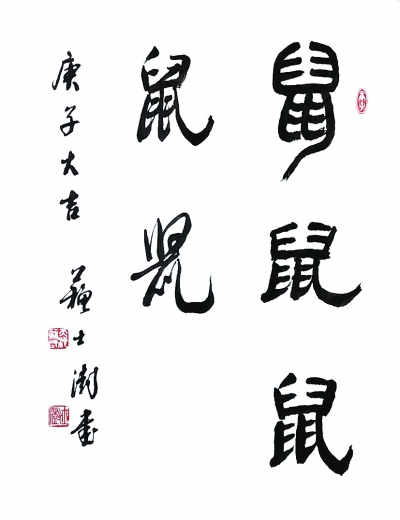 鼠鼠鼠
鼠鼠
庚子大吉 苏士澍书